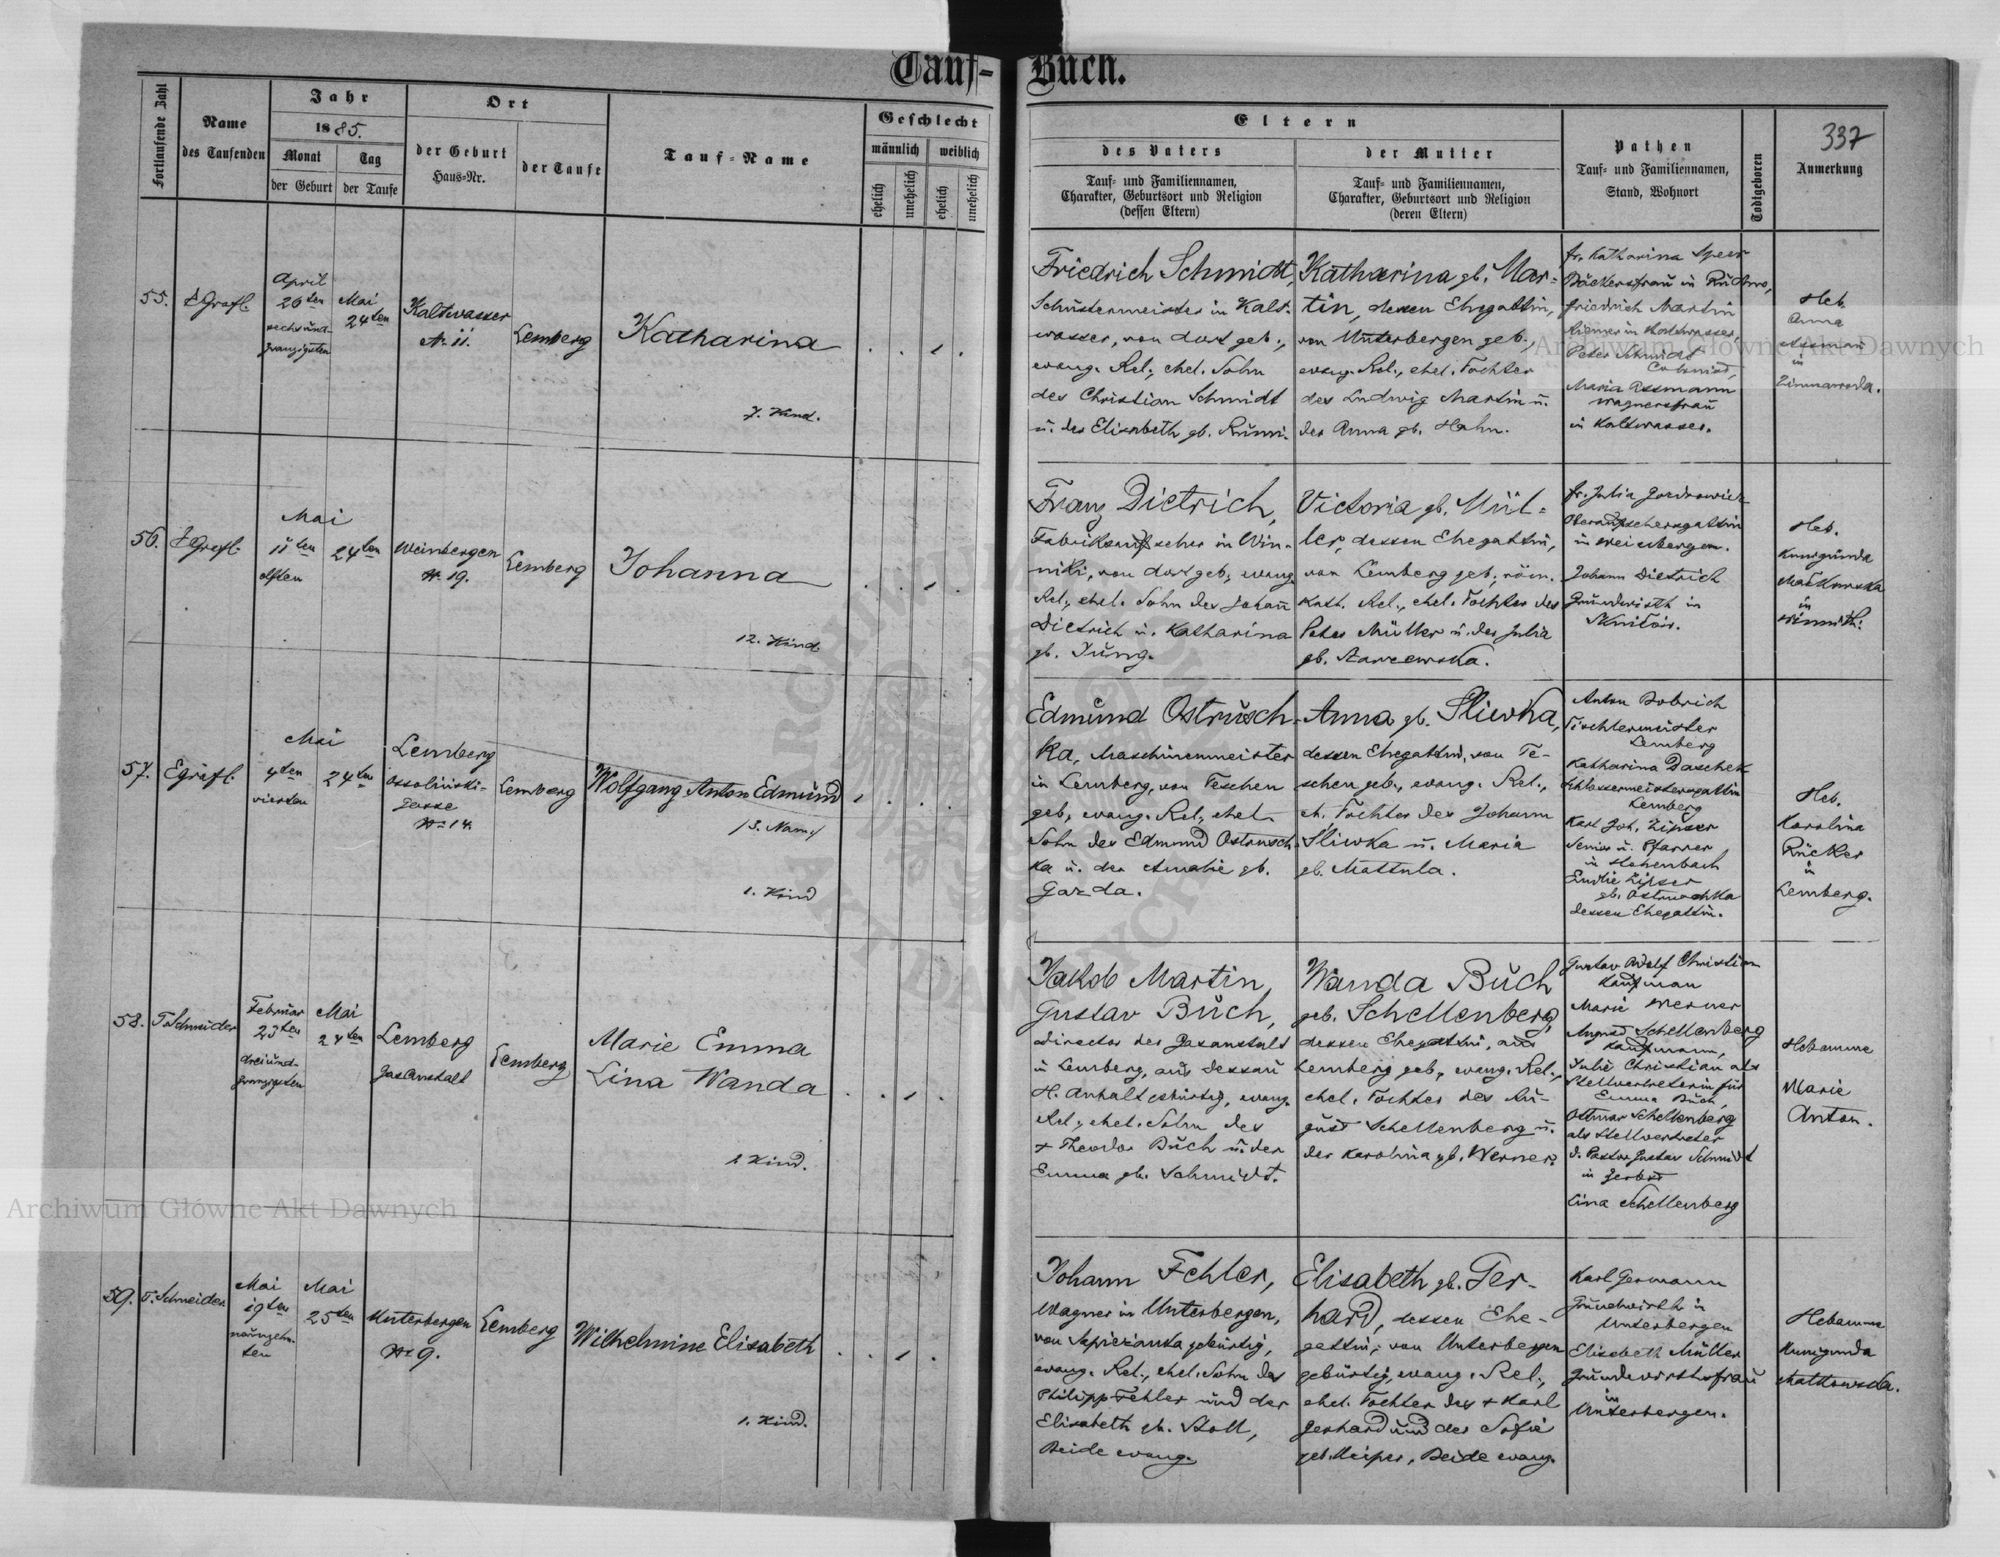 Tauf-Buch.
Fortlaufende Zahl
Name
des Taufenden
Jahr
1885.
Monat
der Geburt
Tag
der Taufe
Ort
der Geburt
Haus-Nr.
der Taufe
Tauf-Name
Geschlecht
männlich
weiblich
ehelich
unehelich
ehelich
unehelich
Eltern
des Vaters
Tauf- und Familiennamen,
Charakter, Geburtsort und Religion
(dessen Eltern)
der Mutter
Tauf- und Familiennamen,
Charakter, Geburtsort und Religion
(deren Eltern)
Pathen
Tauf- und Familiennamen,
Stand, Wohnort
Todtgeboren
337
Anmerkung
55.
April
26ten
sechsund-
zwanzigsten
Mai
24ten
Kaltwasser
N. 11.
Lemberg
Katharina
7. Kind.
Friedrich Schmidt,
Schustermeister in Kalt-
wasser, von dort geb.,
evang. Rel., ehel. Sohn
des Christian Schmidt
u. der Elisabeth gb.
Katharina gb. Mar-
tin, dessen Ehegattin,
von Unterbergen geb.,
evang. Rel., ehel. Tochter
des Ludwig Martin u.
der Anna gb. Hahn.
fr. Katharina Speer
Bäckersfrau in
Friedrich Martin
in Kaltwasser,
Peter Schmidt
Colonist,
Maria Assmann
Wagnersfrau
in Kaltwasser.
Heb.
Anna
Assmann
in
Zimnawoda.
56.
Mai
11ten
elften
24ten
Weinbergen
N. 19.
Lemberg
Johanna
12. Kind.
Franz Dietrich,
Fabriksaufseher in Win-
niki, von dort geb., evang.
Rel., ehel. Sohn des Johann
Dietrich u. Katharina
gb. Jung.
Victoria gb. Mül-
ler, dessen Ehegattin,
von Lemberg geb., röm.
kath. Rel., ehel. Tochter des
Peter Müller u. der Julia
gb.
fr. Julia
Oberaufsehersgattin
in Weinbergen.
Johann Dietrich
Grundwirth in
Heb.
Kunigunda
in
57.
Mai
4ten
vierten
24ten
Lemberg
Ossolinski-
Gasse
N. 14.
Lemberg
Wolfgang Anton Edmund
/3. Nam./
1. Kind
Edmund Ostrusch-
ka, Maschinenmeister
in Lemberg, von Teschen
geb., evang. Rel., ehel.
Sohn des Edmund Ostrusch-
ka u. der Amalie gb.
Gazda.
Anna gb. Sliwka,
dessen Ehegattin, von Te-
schen geb., evang. Rel.,
eh. Tochter des Johann
Sliwka u. Maria
gb. Mattula.
Anton Bobrich
Tischlermeister
Lemberg
Katharina Daschek
Schlossermeistersgattin
Lemberg
Karl Joh. Zipser
Senior u. Pfarrer
in Hohenbach
Emilie Zipser
gb. Ostruschka
dessen Ehegattin.
Heb.
Karolina
Rücker
in
Lemberg.
58.
T. Schneider
Februar
23ten
dreiund-
zwanzigsten
Mai
24ten
Lemberg
Gasanstalt
Lemberg
Marie Emma
Lina Wanda
Kind.
Jakob Martin,
Gustav Buch,
Director der Gasanstalt
in Lemberg, aus Dessau
H. Anhalt gebürtig, evang.
Rel., ehel. Sohn des
+ Theodor Buch u. der
Emma gb. Schmidt.
Wanda Buch
geb. Schellenberg,
dessen Ehegattin, aus
Lemberg geb., evang. Rel.,
ehel. Tochter des Au-
gust Schellenberg u.
der Karolina gb. Werner.
Gustav Adolf Christian
Kaufman
Marie Werner
August Schellenberg
Kaufmann,
Julie Christian als
Stellvertreterin für
Emma Buch,
Ottmar Schellenberg
als Stellvertreter
d. Pastor Gustav Schmidt
in Zerbst
Lina Schellenberg
Hebamme
Marie
Anton.
59.
T. Schneider
Mai
19ten
neunzehn-
ten
Mai
25ten
Unterbergen
N. 9.
Lemberg
Wilhelmine Elisabeth
1. Kind.
Johann Fehler,
Wagner in Unterbergen,
von gebürtig,
evang. Rel., ehel. Sohn des
Philipp Fehler und der
Elisabeth gb. Stoll,
Beide evang.
Elisabeth gb. Ger-
hard, dessen Ehe-
gattin, von Unterbergen
gebürtig, evang. Rel.,
ehel. Tochter des + Karl
Gerhard und der Sofie
geb. Beide evang.
Karl Germann
Grundwirth in
Unterbergen
Elisabeth Müller
Grundwirthsfrau
in
Unterbergen.
Hebamme
Kunigunda
Archiwum Główne Akt Dawnych
Archiwum Główne Akt Dawnych